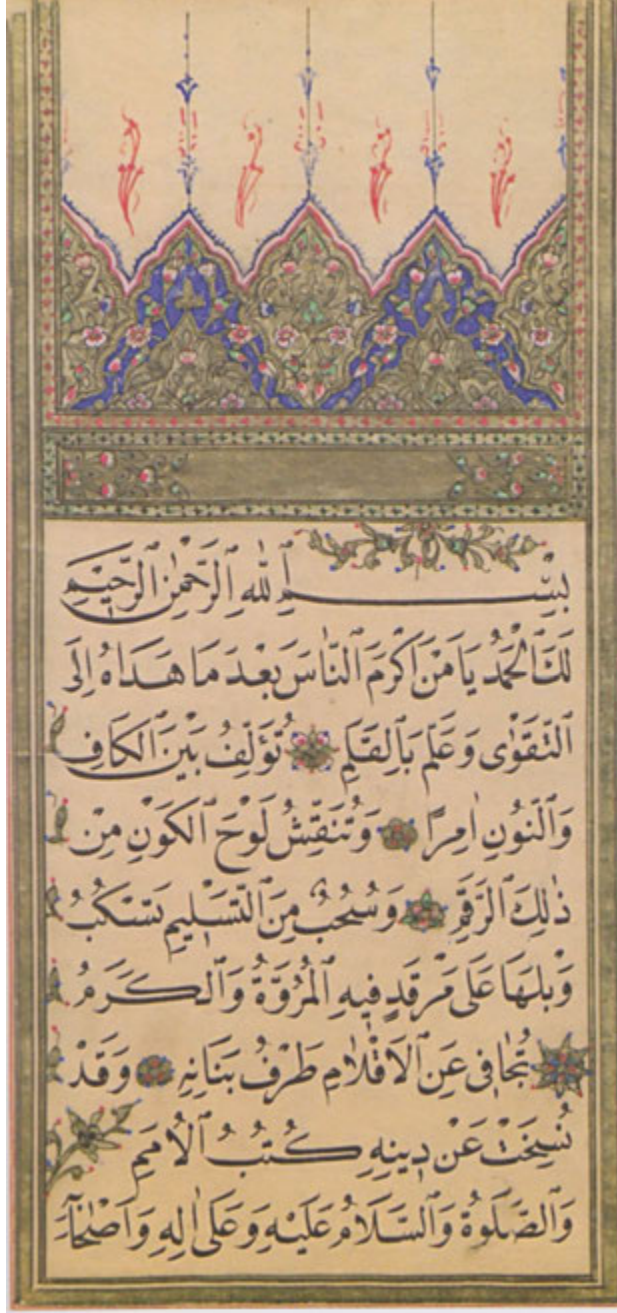 بِسْمِ اللهِ الرَّحْمٰنِ الرَّحِيمِ
لَكَ الْحَمْدُ يَا مَنْ اَكْرَمَ النَّاسَ بَعْدَ مَا هَدَاهُ اِلَى
التَّقْوٰى وَعَلَّمَ بِالْقَلَمِ تُؤَلِّفُ بَيْنَ الْكَافِ
وَالنُّونِ اٰمِرًا وَتُنَقِّشُ لَوْحَ الْكَوْنِ مِنْ
ذٰلِكَ الرَّقَمِ وَسُحُبٌ مِنَ التَّسْلِيمِ تَسْتَكُبُ
وَبْلَهَا عَلَى مَرْقَدٍ فِيهِ الْمُرُوَّةُ وَالْكَرَمُ
تُجَافِى عَنِ الْاَقْلَامِ طَرْفُ بَنَانِهِ وَقَدْ
نُسِخَتْ عَنْ دِينِهِ كُتُبُ الْاُمَمِ
وَالصَّلٰوةُ وَالسَّلَامُ عَلَيْهِ وَعَلَى اٰلِهِ